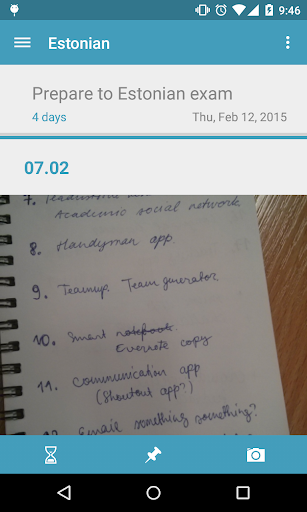 9:46
Estonian
Prepare to Estonian exam
4 days
Thu, Feb 12, 2015
07.02
7.
Academic social network
8. Handyman app
9. Teamup Team generator
10. Smart notebook.
Evernote copy
11. Communication app
(Shoutout app?)
12. Emaile something something?